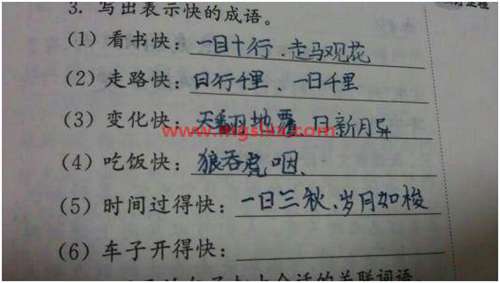 3. 写出表示快的成语。
(1) 看书快：一目十行、走马观花
(2) 走路快：日行千里、一日千里
(3) 变化快：天翻地震 日新月异
(4) 吃饭快：狼吞虎咽.
(5) 时间过得快：一日三秋、岁月如梭
(6) 车子开得快：